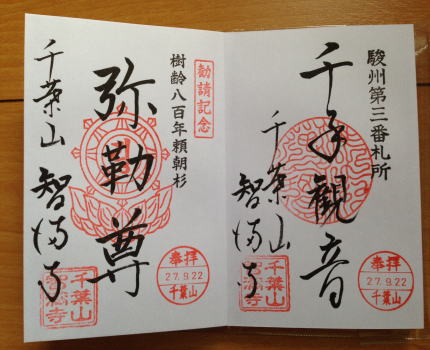 駿州第三番札所
千手観音
千葉山
智満寺
奉拝
27.9.22
千葉山
千葉山
智満寺
勧請記念
樹齢八百年頼朝杉
弥勒尊
千葉山
智満寺
奉拝
27.9.22
千葉山
千葉山
智満寺